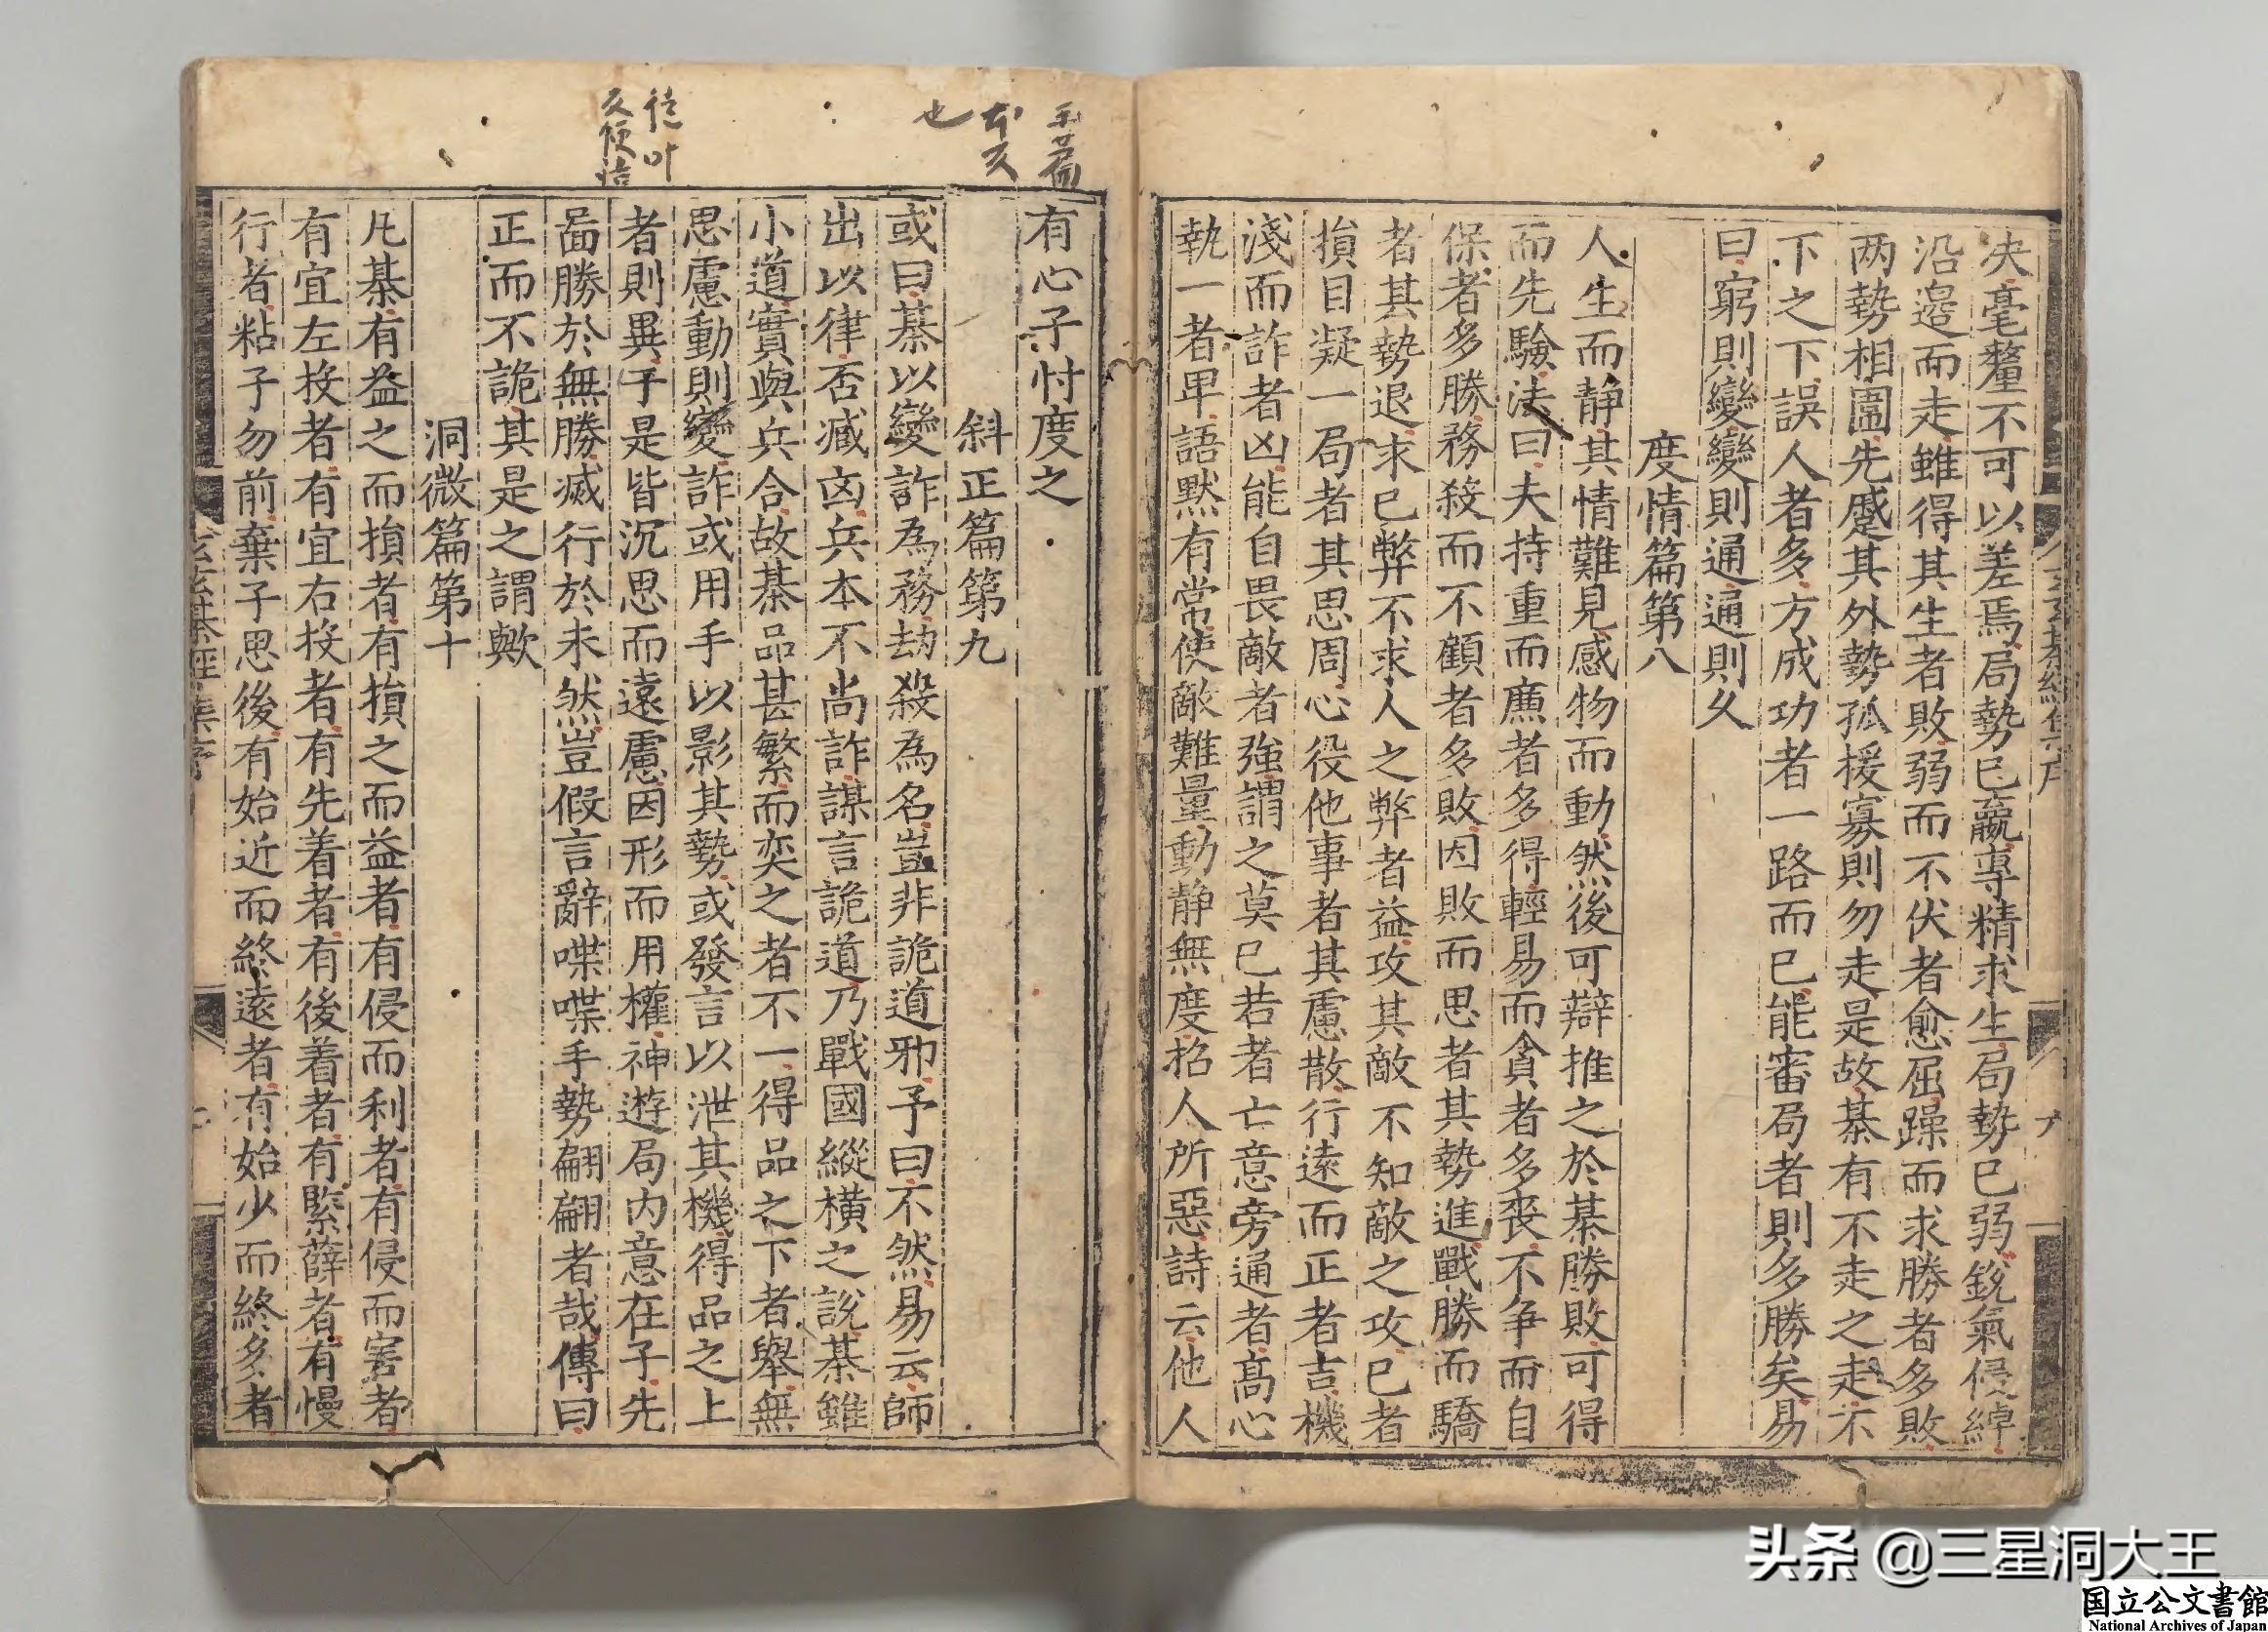 決毫釐不可以差焉局勢已贏專精求生局勢已弱銳氣侵綽
沿邉而走雖得其生者敗弱而不伏者愈屈躁而求勝者多敗
两勢相圍先蹙其外勢孤援寡則勿走是故棊有不走之走不
下之下誤人者多方成功者一路而已能審局者則多勝矣易
曰窮則變變則通通則久
度情篇第八
人生而静其情難見感物而動然後可辯推之於棊勝敗可得
而先驗法曰夫持重而廉者多得輕易而貪者多喪不争而自
保者多勝務殺而不顧者多敗因敗而思者其勢進戰勝而驕
者其勢退求已弊不求人之弊者益攻其敵不知敵之攻已者
損目凝一局者其思周心役他事者其慮散行遠而正者吉機
淺而詐者凶能自畏敵者強謂之莫已若者亡意旁通者髙心
執一者卑語黙有常使敵難量動静無度招人所惡詩云他人
有心子忖度之
斜正篇第九
或曰棊以變詐為務劫殺為名豈非詭道邪予曰不然易云師
出以律否臧凶兵本不尚詐謀言詭道乃戰國縱橫之說棊雖
小道實與兵合故棊品甚繁而奕之者不一得品之下者舉無
思慮動則變詐或用手以影其勢或發言以泄其機得品之上
者則異于是皆沉思而遠慮因形而用權神遊局内意在子先
啚勝於無勝滅行於未然豈假言辭喋喋手勢翩翩者哉傳曰
正而不詭其是之謂歟
洞微篇第十
凡棊有益之而損者有損之而益者有侵而利者有侵而害者
有宜左投者有宜右投者有先着者有後着者有緊薜者有慢
行者粘子勿前棄子思後有始近而終遠者有始少而終多者
玉篇
也
头条 @三星洞大王
国立公文書館
National Archives of Japan